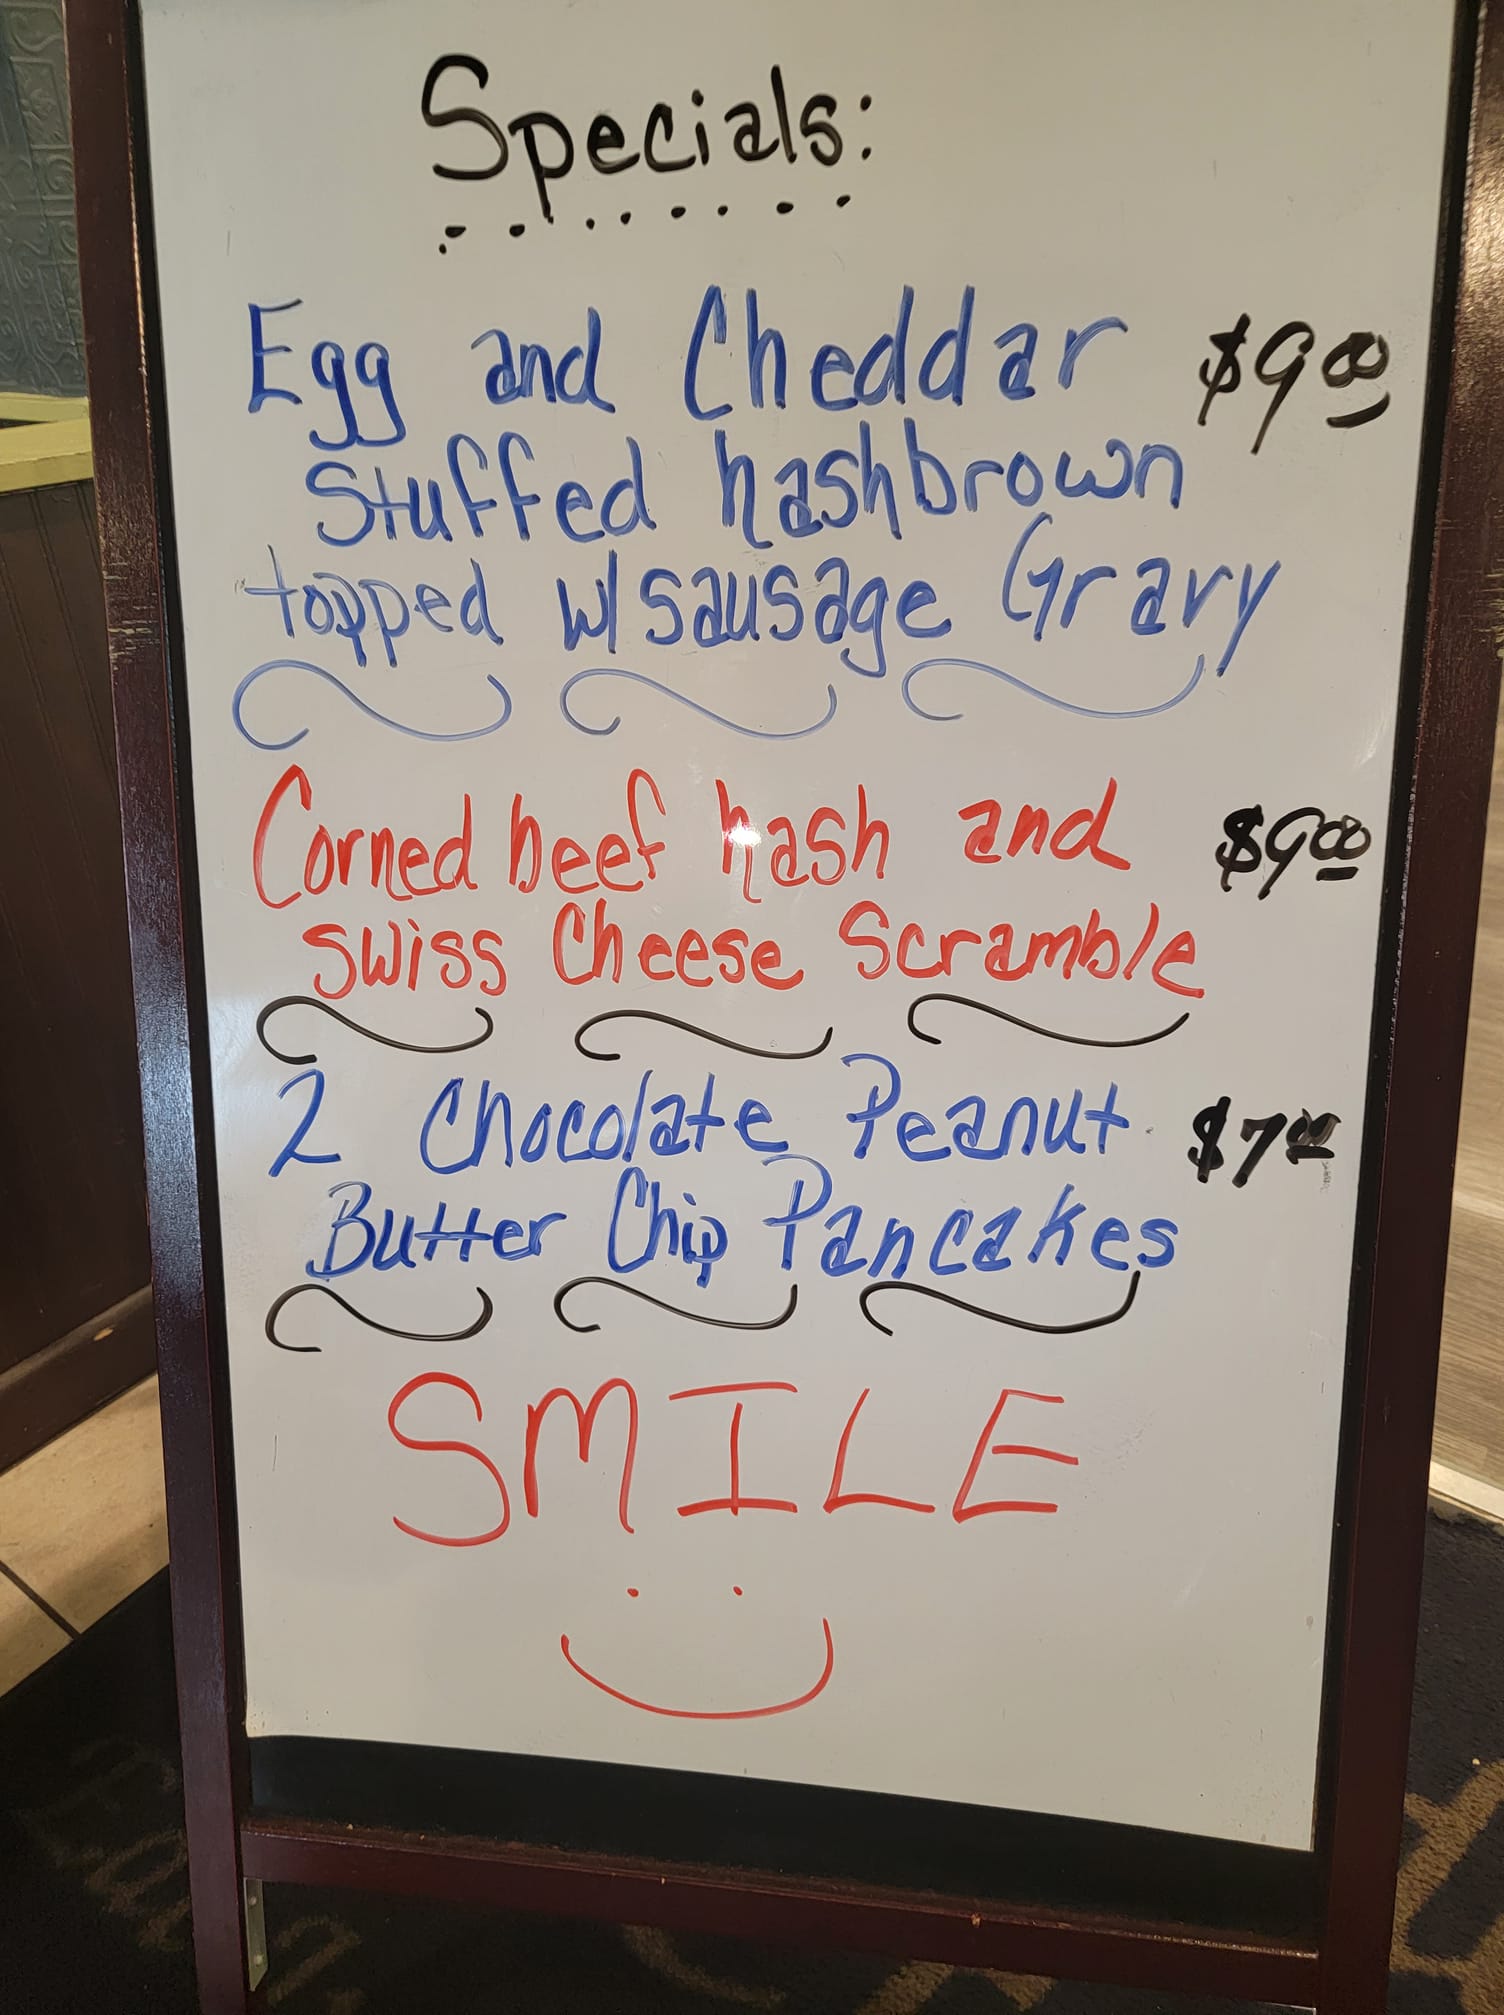 Specials:
Egg and Cheddar $9.00
Stuffed hashbrown
topped w/sausage Gravy
Corned beef hash and $9.00
swiss Cheese Scramble
2 Chocolate Peanut $7.00
Butter Chip Pancakes
SMILE